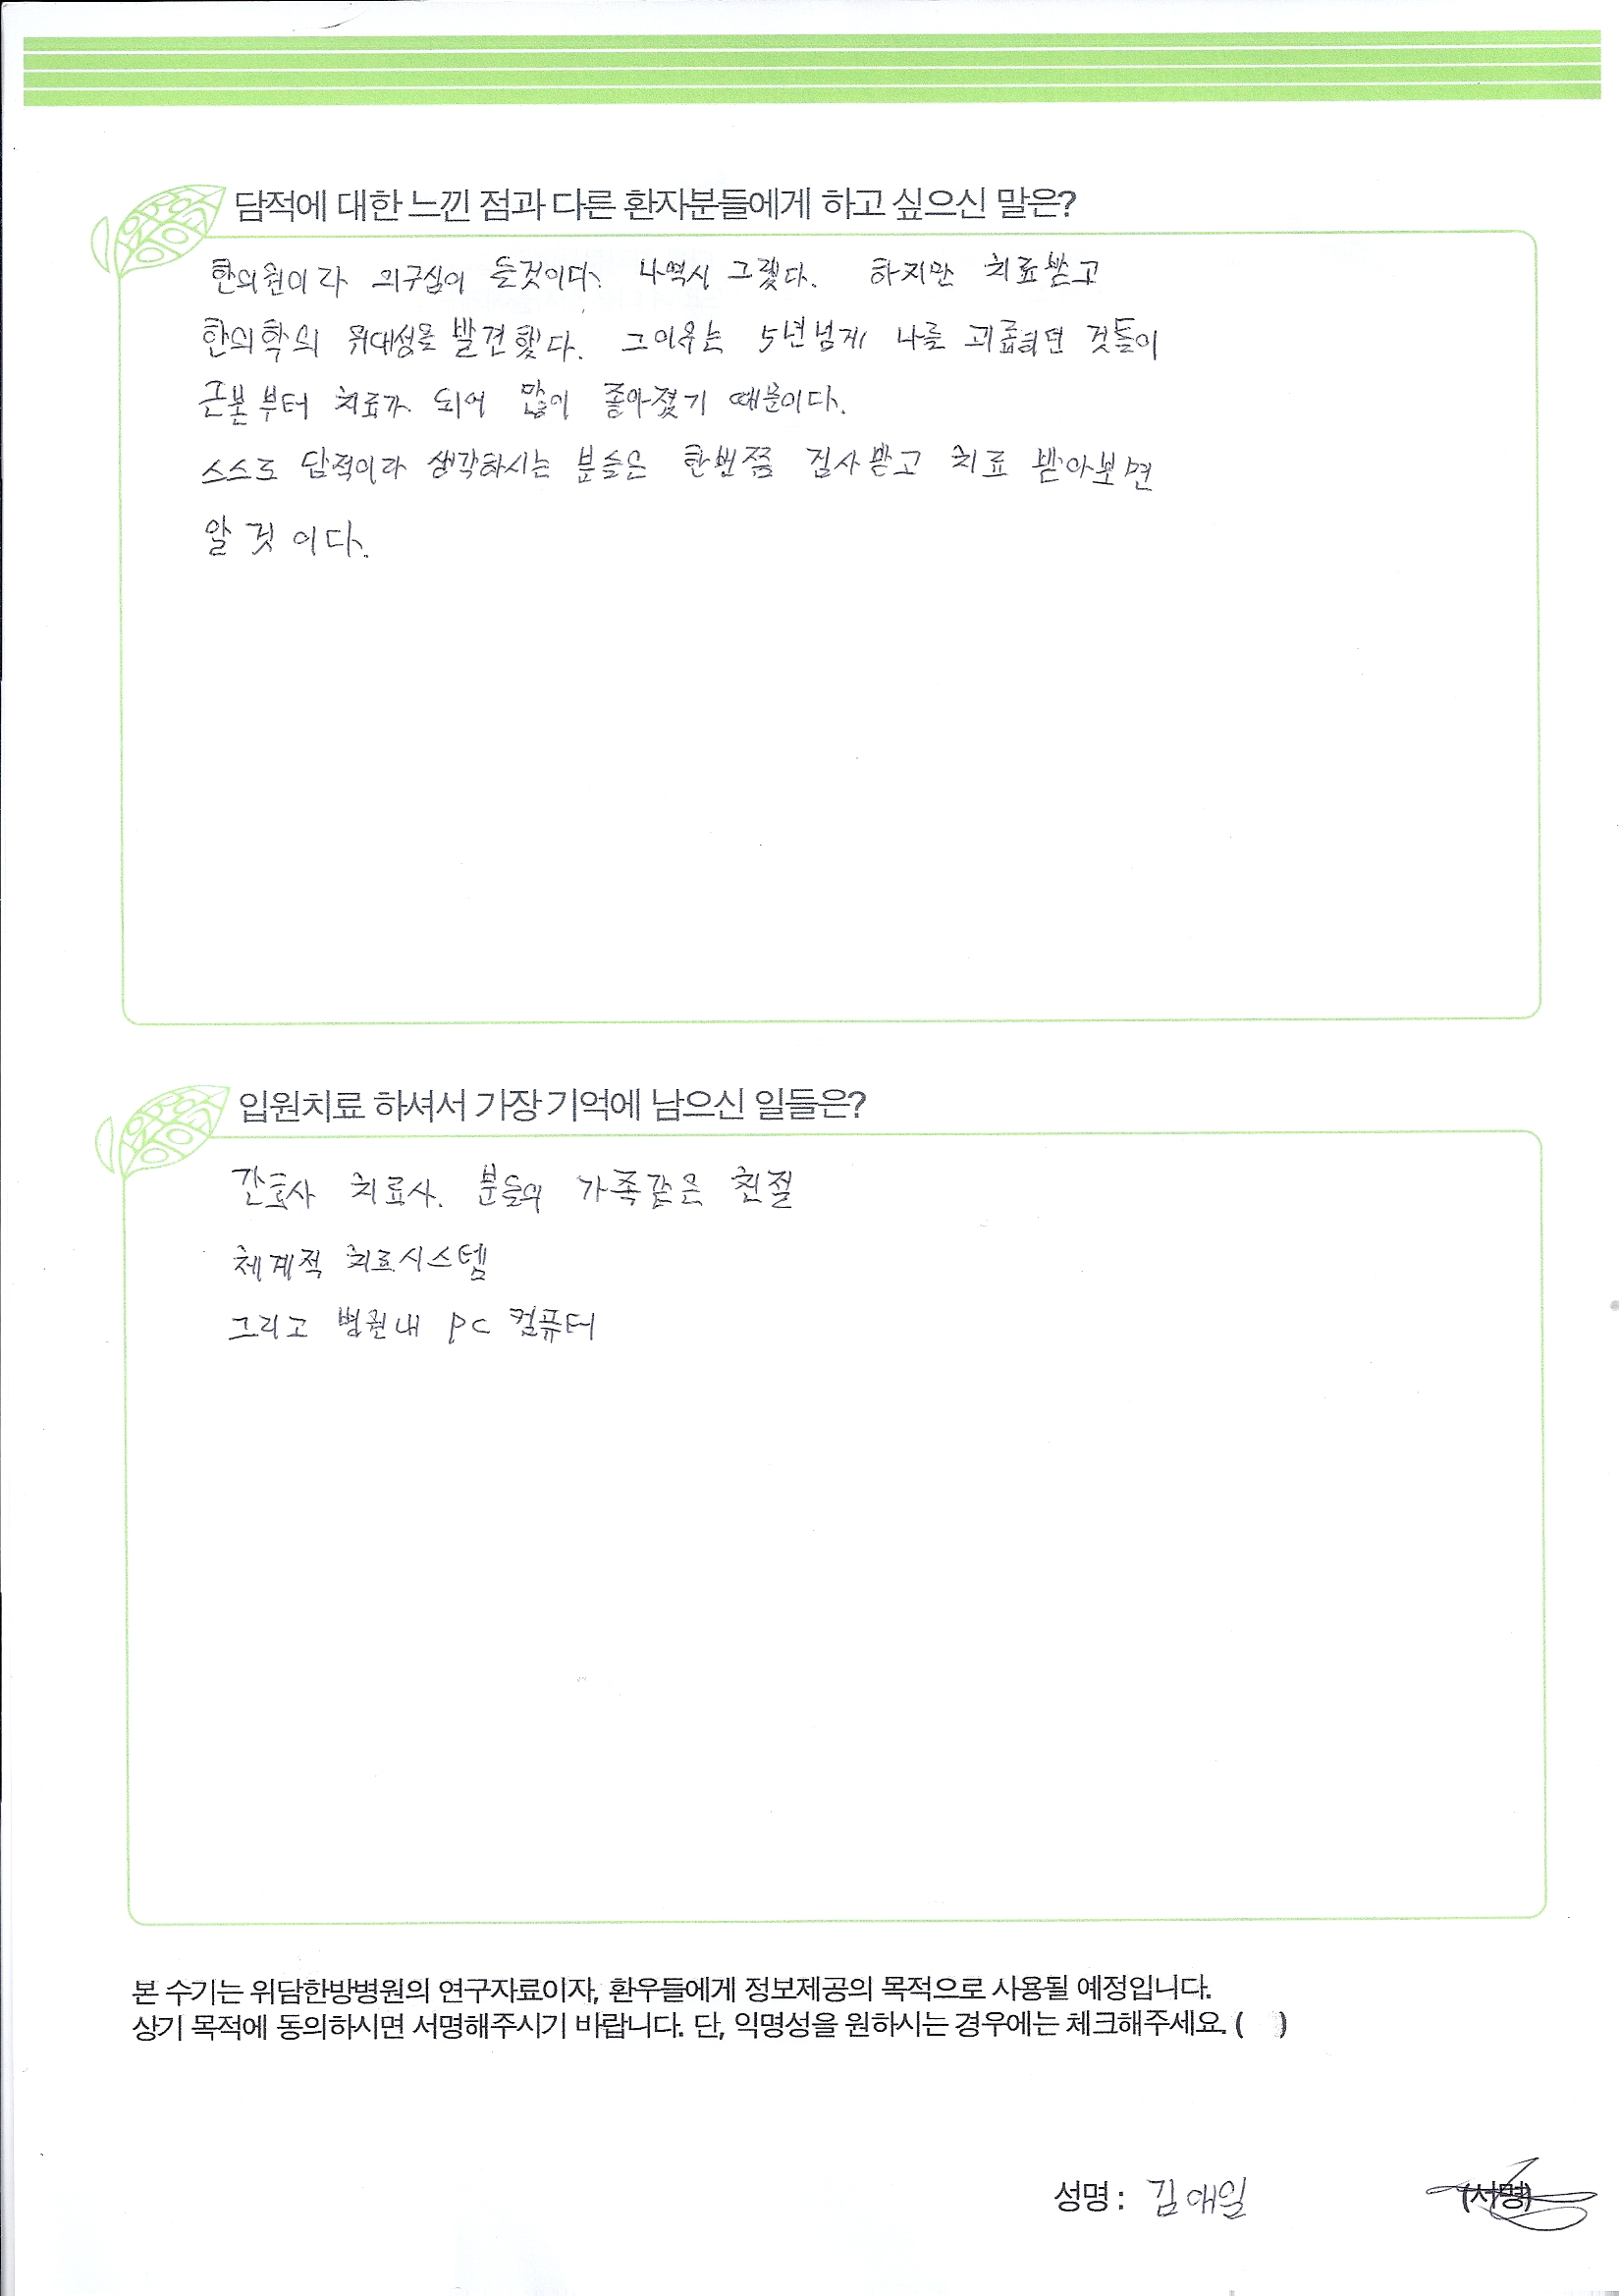 담적에 대한 느낀 점과 다른 환자분들에게 하고 싶으신 말은?
한의원이라 의구심이 들것이다. 나역시 그랬다. 하지만 치료받고
한의학의 위대성을 발견했다. 그이유는 5년넘게 나를 괴롭히던 것들이
근본부터 치료가 되어 많이 좋아졌기 때문이다.
스스로 담적이라 생각하시는 분들은 한번쯤 검사받고 치료 받아보면
알 것 이다.
입원치료 하셔서 가장 기억에 남으신 일들은?
간호사 치료사. 분들의 가족같은 친절
체계적 치료시스템
그리고 병원내 PC 컴퓨터
본 수기는 위담한방병원의 연구자료이자, 환우들에게 정보제공의 목적으로 사용될 예정입니다.
상기 목적에 동의하시면 서명해주시기 바랍니다. 단, 익명성을 원하시는 경우에는 체크해주세요. ( )
성명 : 김애일 (서명)